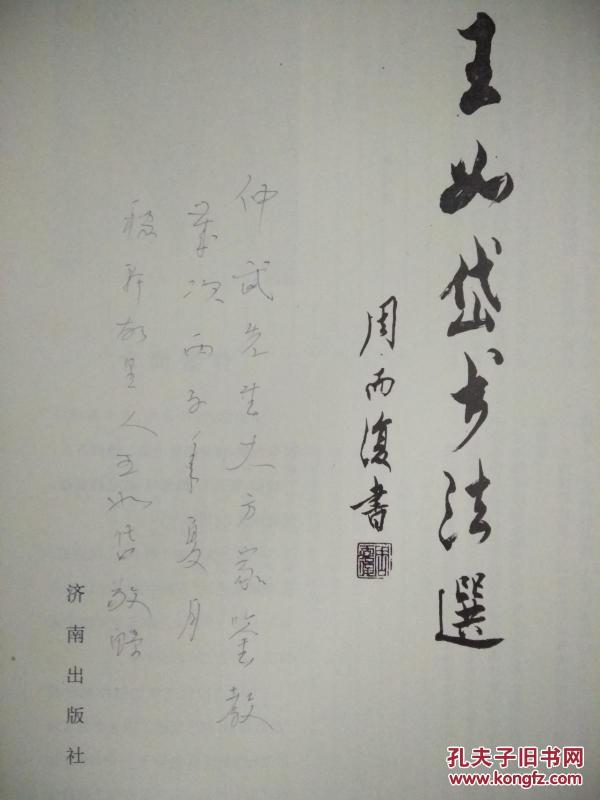 王如岱书法選
周而復書
仲武先生大方家鑒教
歲次丙子年夏月
稼轩故里人王如岱敬赠
济南出版社
孔夫子旧书网
www.kongfz.com